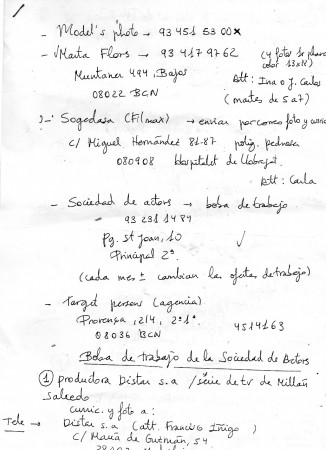 - Model's photo → 93 451 53 00 x
- √ Marta Flors → 93 417 97 62 (4 fotos 1r plano
color 13x18)
Muntaner 494, Bajos
08022 BCN
Att: Ina o J. Carlos
(martes de 5 a 7)
- Sogedasa (Filmax) → enviar por correo foto y curric
C/ Miguel Hernández 81-87 políg. pedrosa
080908 Hospitalet de Llobregat.
Att: Carla
- Sociedad de actors → bolsa de trabajo
93 231 14 89
Pg. St Joan, 10 √
Principal 2ª
(cada mes ± cambian las ofertas de trabajo)
- Target persons (agencia)
Provença, 214, 2º 1ª
08036 BCN
4514163
Bolsa de Trabajo de la Sociedad de Actors
① productora Distar s.a / serie de tv de Millán
Salcedo
curric. y foto a:
Tele → Distar s.a (att. Francisco Iñigo)
C/ María de Guzmán, 54